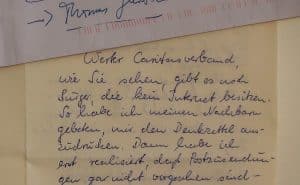 → Thomas
Werter Caritasverband,
wie Sie sehen, gibt es noch
Bürger, die kein Internet besitzen.
So habe ich meinen Nachbarn
gebeten, mir den Denkzettel aus-
zudrucken. Dann habe ich
erst realisiert, daß Postzusendun-
gen gar nicht vorgesehen sind -